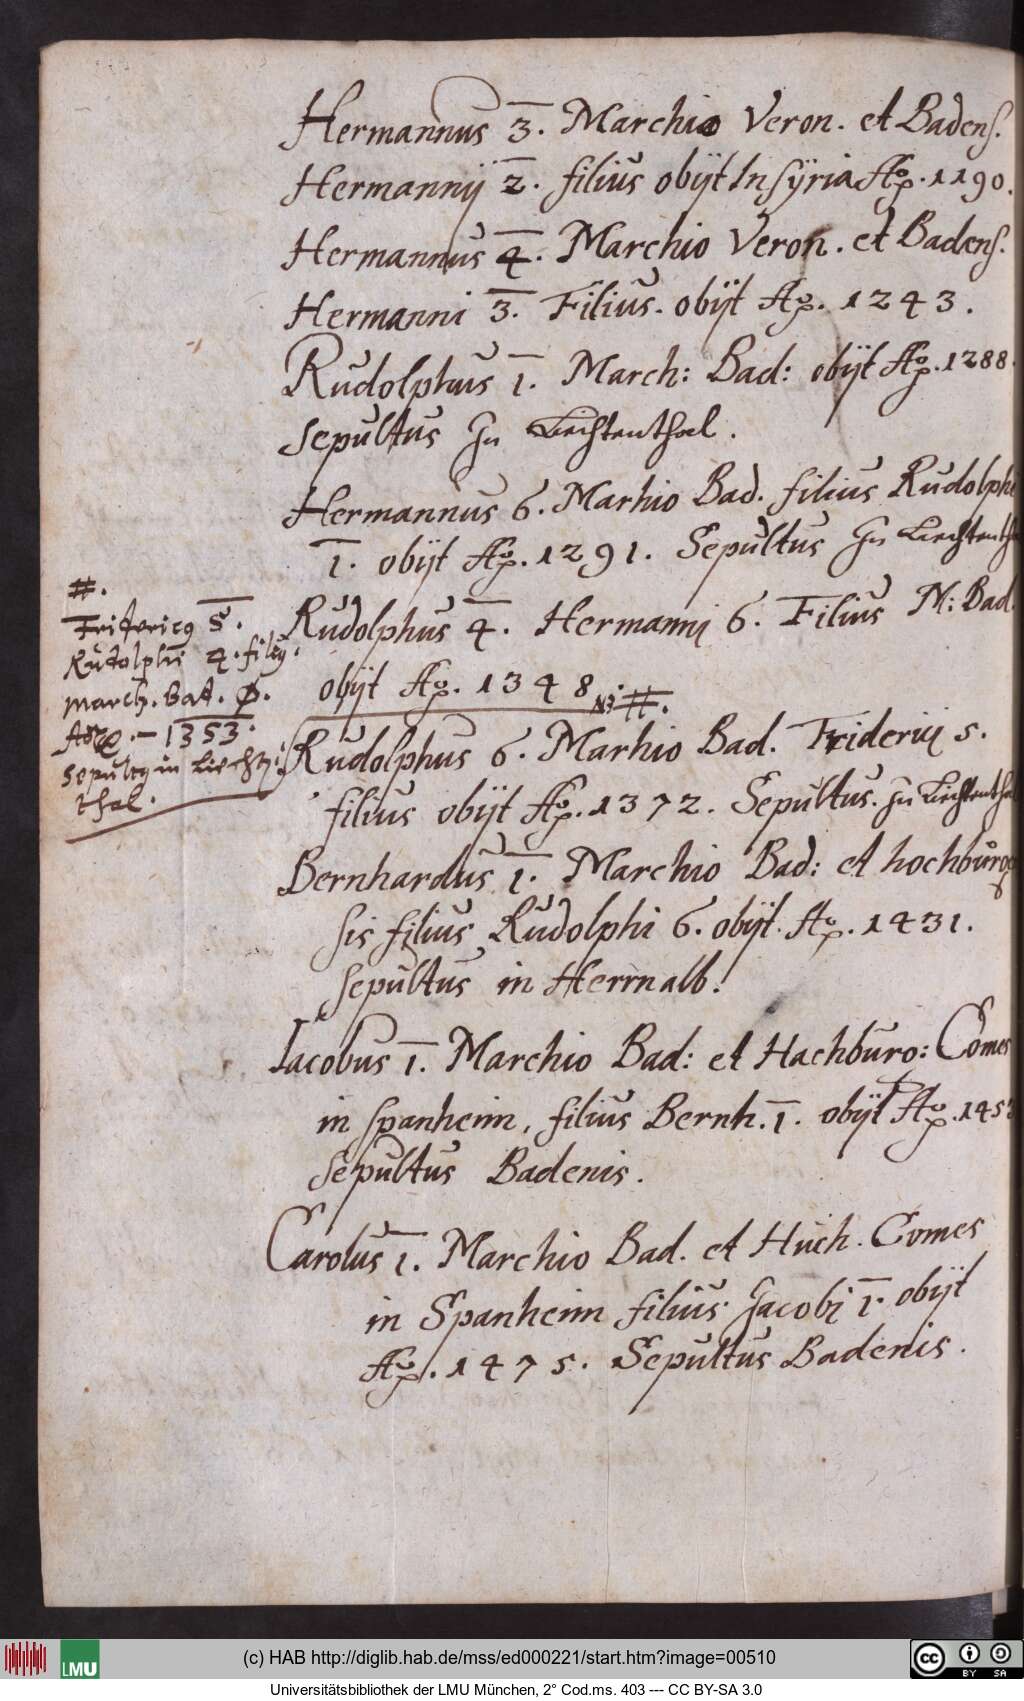 Hermannus 3. Marchio Veron. et Badens.
Hermannij 2. filius obijt In Sÿria Ao. 1190.
Hermannus 4. Marchio Veron. et Badens.
Hermanni 3. Filius. obijt Ao. 1243.
Rudolphus 1. March: Bad: obijt Ao. 1288.
Sepultus In Liechtenthal.
Hermannus 6. Marhio Bad. filius Rudolphi
1. obijt Ao. 1291. Sepultus In Liechtentha
#.
Fridericus 5.
Rudolphi 4. filius.
march. Bad.
Ao. 1353.
Sepultus in Liechtē:
thal.
Rudolphus 4. Hermannj 6. Filius M: Bad.
obijt Ao. 1348 N3 #.
Rudolphus 6. Marhio Bad. Friderici 5.
filius obijt Ao. 1372. Sepultus. In Liechtentha
Bernhardus 1. Marchio Bad: et hochburg
sis filius Rudolphi 6. obijt. Ao. 1431.
Sepultus in Herrnalb.
Iacobus 1. Marchio Bad: et Hachburo: Comes
in Spanheim, filius Bernh. 1. obijt Ao. 1453
Sepultus Badenis.
Carolus 1. Marchio Bad. et Huch. Comes
in Spanheim filius Jacobj 1. obijt
Ao. 1475. Sepultus Badenis.
LMU
(c) HAB http://diglib.hab.de/mss/ed000221/start.htm?image=00510
cc BY SA
Universitätsbibliothek der LMU München, 2° Cod.ms. 403 --- CC BY-SA 3.0